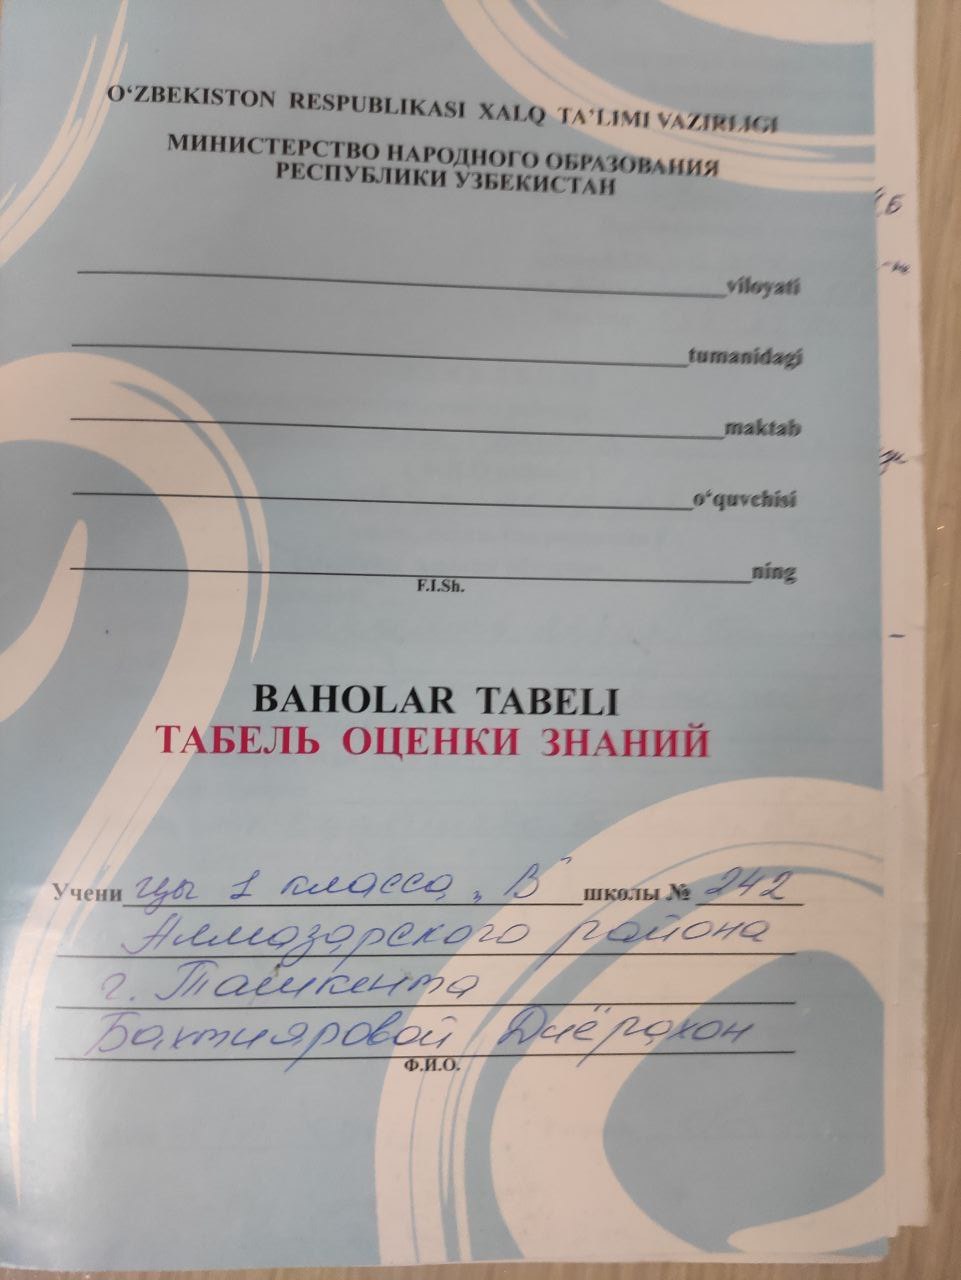 O‘ZBEKISTON RESPUBLIKASI XALQ TA’LIMI VAZIRLIGI
МИНИСТЕРСТВО НАРОДНОГО ОБРАЗОВАНИЯ
РЕСПУБЛИКИ УЗБЕКИСТАН
viloyati
tumanidagi
maktab
o‘quvchisi
ning
F.I.Sh.
BAHOLAR TABELI
ТАБЕЛЬ ОЦЕНКИ ЗНАНИЙ
Ученицы 1 класса „В“ школы № 242
Алмазарского района
г. Ташкента
Бахтияровой Диёрахон
Ф.И.О.